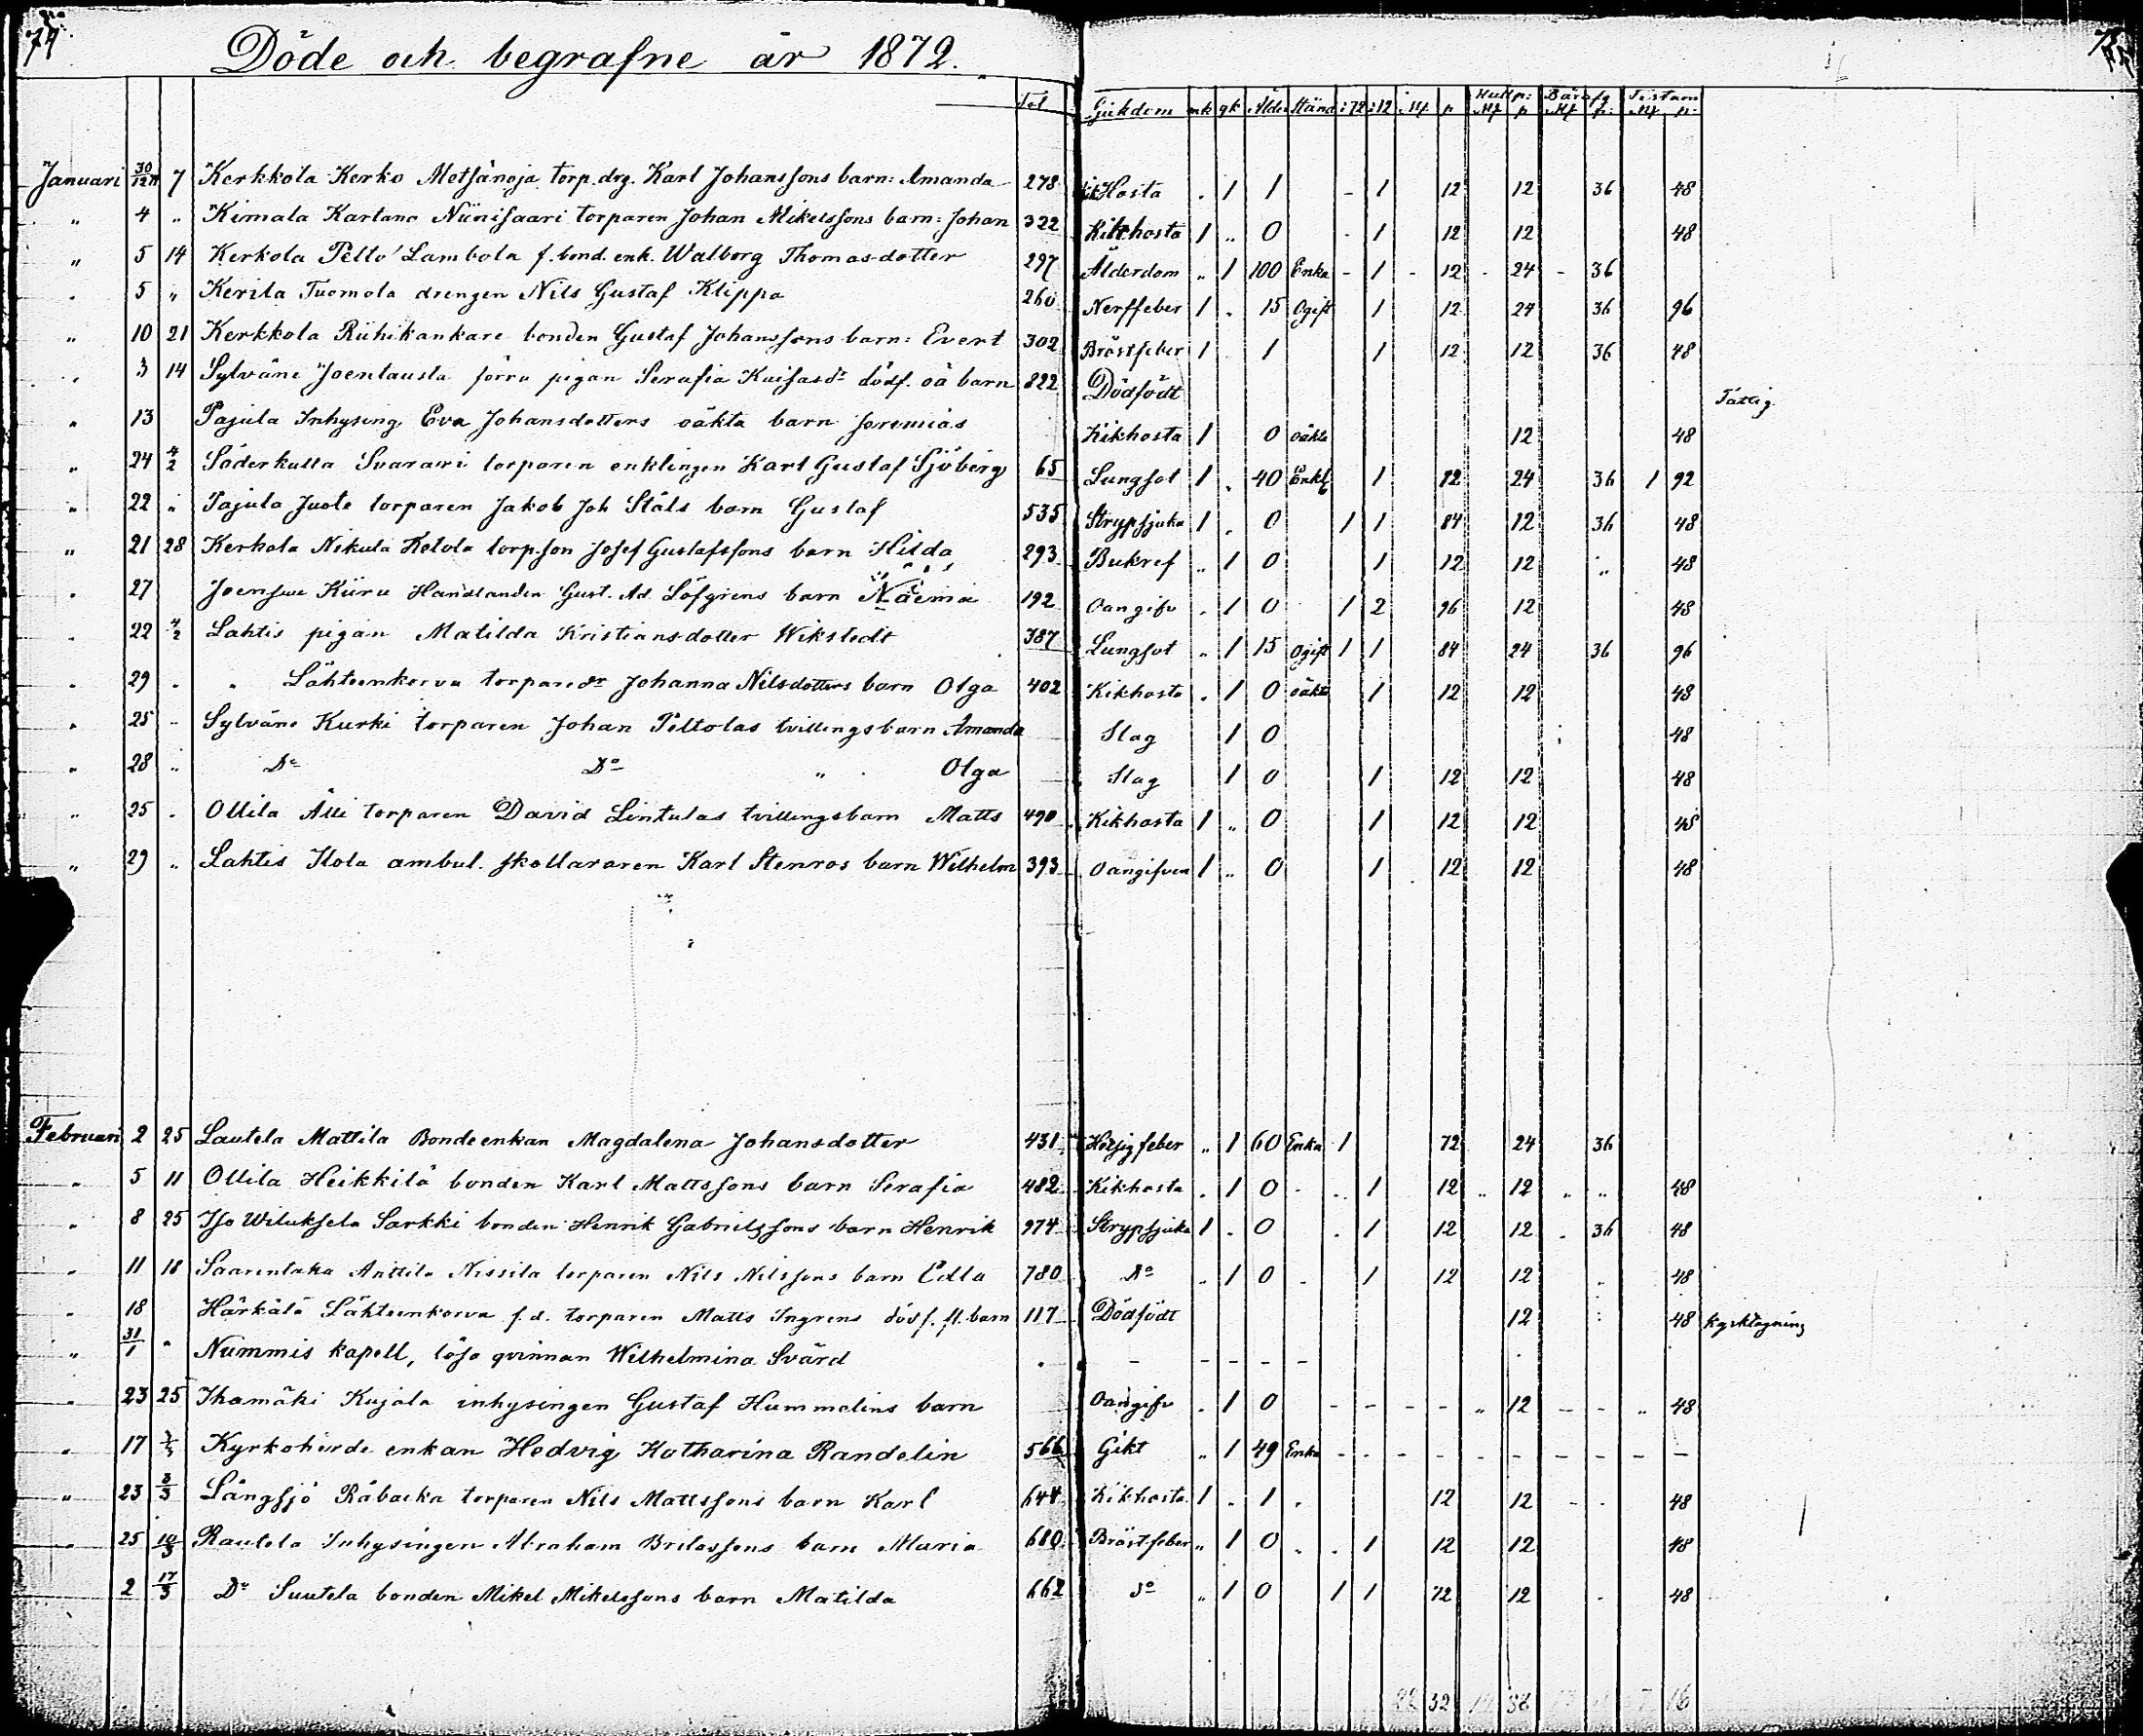 74
Döde och begrafne år 1872.
Fol Sjukdom mk qk Ålder Stånd :72 :12 Mk p Mk p Bår Mk p: Mk p:
Januari 30/12 71 7 Kerkkola Kerko Metsänoja torp. drg. Karl Johanssons barn: Amanda 278 Hosta . 1 1 - 1 12 12 36 48
" 4 " Kimala Kartano Niinisaari torparen Johan Mikelssons barn: Johan 322 Kikhosta 1 " 0 . 1 12 12 48
" 5 14 Kerkola Pelto Lambola f. bond. enk. Walborg Thomasdotter 297 Ålderdom " 1 100 Enka - 1 - 12 - 24 - 36
. 5 " Kerila Tuomola drengen Nils Gustaf Klippa 260 Nerffeber 1 . 15 Ogift 1 12 24 36 96
" 10 21 Kerkkola Riihikankare bonden Gustaf Johanssons barn: Evert 302 Bröstfeber 1 1 1 12 12 36 48
" 3 14 Sylväne Joentausta pigan Serafia dödf. oä barn 822 Dödfödt
" 13 Pajula Inhysing Eva Johansdotters oäkta barn Jeremias Kikhosta 1 0 oäkta 12 48
" 24 4/2 Söderkulla torparen enklingen Karl Gustaf Sjöberg 65 Lungsot 1 . 40 Enkl 1 12 24 36 1 92
" 22 " Pajula Juote torparen Jakob Joh Ståls barn Gustaf 535 Strypsjuka 1 . 0 1 1 84 12 36 48
" 21 28 Kerkola Nikula Ketola torp. son Josef Gustafssons barn Hilda 293 Bukref " 1 0 1 12 12 " 48
. 27 Joensuu Kiiru Handlanden Gust. Ad. Löfgrens barn Naëmia 192 Oangifv . 1 0 1 2 96 12 48
. 22 4/2 Lahtis pigan Matilda Kristiansdotter Wikstedt 387 Lungsot " 1 15 Ogift 1 1 84 24 36 96
. 29 . " Lähteenkorva Johanna Nilsdotters barn Olga 402 Kikhosta . 1 0 oäkta 1 12 12 48
. 25 " Sylväne Kurki torparen Johan Peltolas tvillingsbarn Amanda Slag 1 0 48
" 28 " Do Do " Olga Slag 1 0 1 12 12 48
" 25 . Ollila Älli torparen David Lintulas tvillingsbarn Matts 490 Kikhosta 1 " 0 1 12 12 48
" 29 " Lahtis Ilola ambul. skolläraren Karl Stenros barn Wilhelm 393 Oangifven 1 " 0 1 12 12 48
Februari 2 25 Lautela Mattila Bondeenkan Magdalena Johansdotter 431 Hetsigfeber " 1 60 Enka 1 72 24 36
" 5 11 Ollila Heikkilä bonden Karl Mattssons barn Serafia 482 Kikhosta . 1 0 . 1 12 " 12 " " 48
" 8 25 Iso Wiluksela Sarkki bonden Henrik Gabrielssons barn Henrik 974 Strypsjuka 1 . 0 . 1 12 12 . 36 48
" 11 18 Saarentaka Anttila Nissila torparen Nils Nilssons barn Edla 780 Do . 1 0 . 1 12 12 48
" 18 Härkälä Lähteenkorva f.d. torparen Matts Ingrens dödf. fl. barn 117 Dödfödt 12 48 kyrktagning
" 31/1 " Nummis kapell, lösa qvinnan Wilhelmina Svärd . - - - - -
" 23 25 Ikamäki Kujala inhysingen Gustaf Hummelins barn Oangifv . 1 0 - - - - " 12 - - " 48
" 17 Kyrkoherde enkan Hedvig Katharina Randelin 566 Gikt " 1 49 Enka - - - - - - - - - -
" 23 3/3 Långsjö Råbacka torparen Nils Mattssons barn Karl 644 Kikhosta 1 . 1 . 12 12 - . 48
" 25 10/3 Rautela Inhysingen Abraham barn Maria 680 Bröstfeber " 1 0 . . 1 12 12 48
. 2 17/3 Do Suutela bonden Mikel Mikelssons barn Matilda 662 do " 1 0 1 1 72 12 . 48